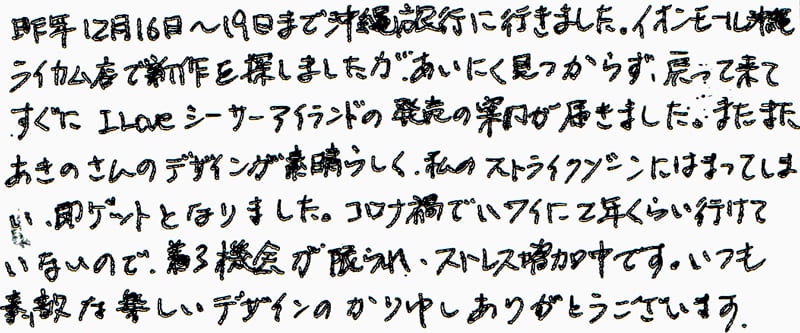 昨年12月16日～19日まで沖縄旅行に行きました。イオンモール沖縄
ライカム店で新作を探しましたが、あいにく見つからず、戻って来て
すぐに I Love シーサーアイランドの発売の案内が届きました。またまた
あきのさんのデザインが素晴らしく、私のストライクゾーンにはまってしま
い、即ゲットとなりました。コロナ禍でハワイに2年くらい行けて
いないので、着る機会が限られ、ストレス増加中です。いつも
素敵な楽しいデザインのかりゆしありがとうございます。